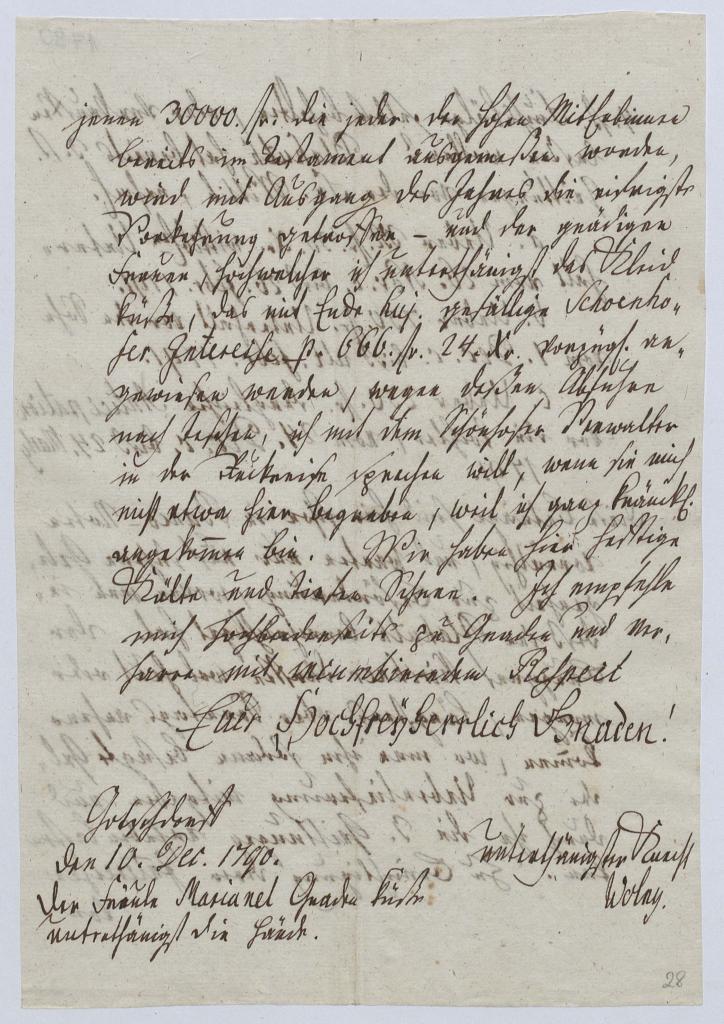 jenen 30000. fr: die jeder der hohen MitErbinnen
bereits im Testament ausgemeßen worden,
wird mit Ausgang des Jahres die richtigste
Vorkehrung getroffen – und der gnädigen
Frauen, hochwelcher ich unterthänigst das Kleid
küße, das mit Ende huj. gefällige Schoenho„
fer Intereße p. 666. fr. 24. Xr. vorzügl. an„
gewiesen werden, wegen deßen Abfuhre
nach Teschen, ich mit dem Schönhofer Verwalter
in der Ruckreise sprechen will, wenn sie mich
nicht etwa hier begraben, weil ich ganz kränckl.
angekom̄en bin. Wir haben hier heftige
Kälte und tiefen Schnee. Ich empfehle
mich hochbeiderseits zu Gnaden und ver„
harre mit Respect
Euer Hochfreyherrlich Gnaden!
Gotschdorff
den 10. Dec. 1790.
unterthänigster Knecht
Wolny.
Der Fräule Marianel Gnaden küße
unterthänigst die Hände.
28